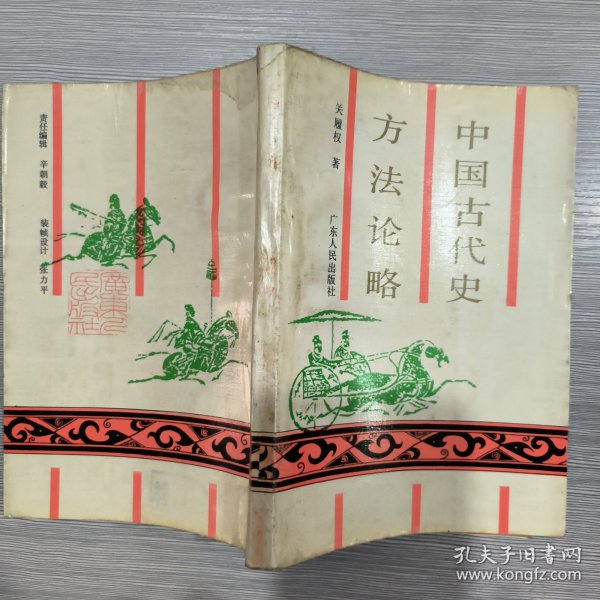 中国古代史
方法论略
关履权 著
广东人民出版社
责任编辑 辛朝毅
装帧设计 张力平
广东人
民出版社
孔夫子旧书网
www.kongfz.com